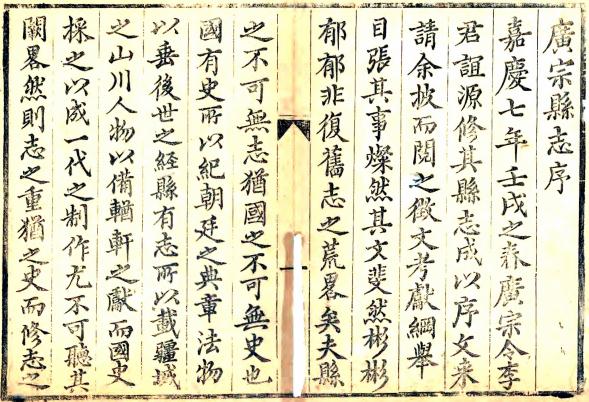 廣宗縣志序
嘉慶七年壬戌之春廣宗令李
君誼源修其縣志成以序文來
請余披而閱之徵文考獻綱舉
目張其事燦然其文斐然彬彬
郁郁非復舊志之荒畧矣夫縣
之不可無志猶國之不可無史也
國有史所以紀朝廷之典章法物
以垂後世之經縣有志所以載疆域
之山川人物以備輶軒之獻而國史
採之以成一代之制作尤不可聽其
闕畧然則志之重猶之史而修志之